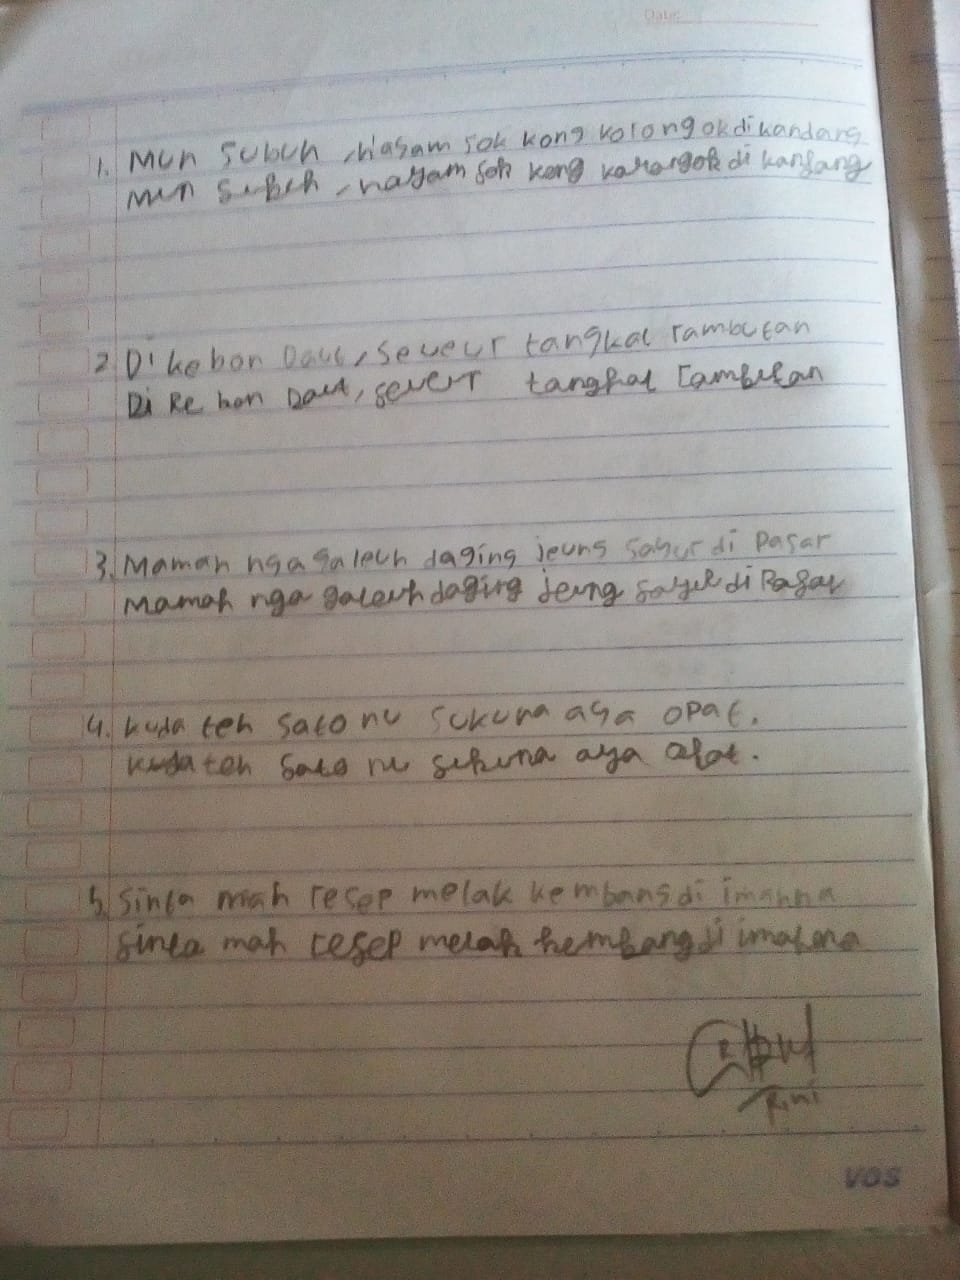 Date:
1. Mun subuh, hayam sok kong korongok di kandang
mun subuh, hayam sok kong karongok di kandang
2. Di kebon Daut, seueur tangkal rambutan
Di ke bon Daut, seueur tangkal rambutan
3. Mamah nga galeuh daging jeung sayur di pasar
Mamah nga galeuh daging jeung sayur di Pasar
4. kuda teh sato nu sukuna aya opat.
kuda teh sato nu sukuna aya opat.
5. Sinta mah resep melak kembang di imahna
Sinta mah resep melak kembang di imahna
Rini
VOS